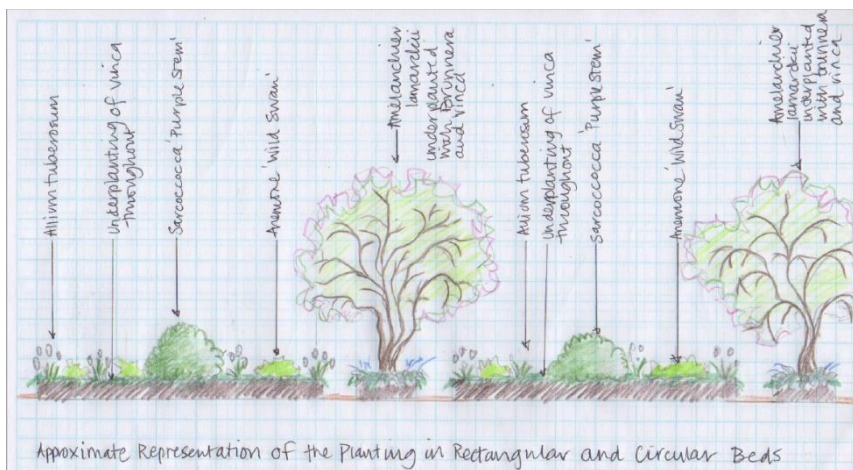 Allium tuberosum
Underplanting of vinca
throughout
Sarcoccocca 'Purple stem'
Anemone 'Wild Swan'
Amelanchier
lamarckii
underplanted
with Brunnera
and vinca
Allium tuberosum
Underplanting of vinca
throughout
Sarcoccocca 'Purple stem'
Anemone 'Wild Swan'
Amelanchier
lamarckii
underplanted
with brunnera
and vinca
Approximate Representation of the Planting in Rectangular and Circular Beds